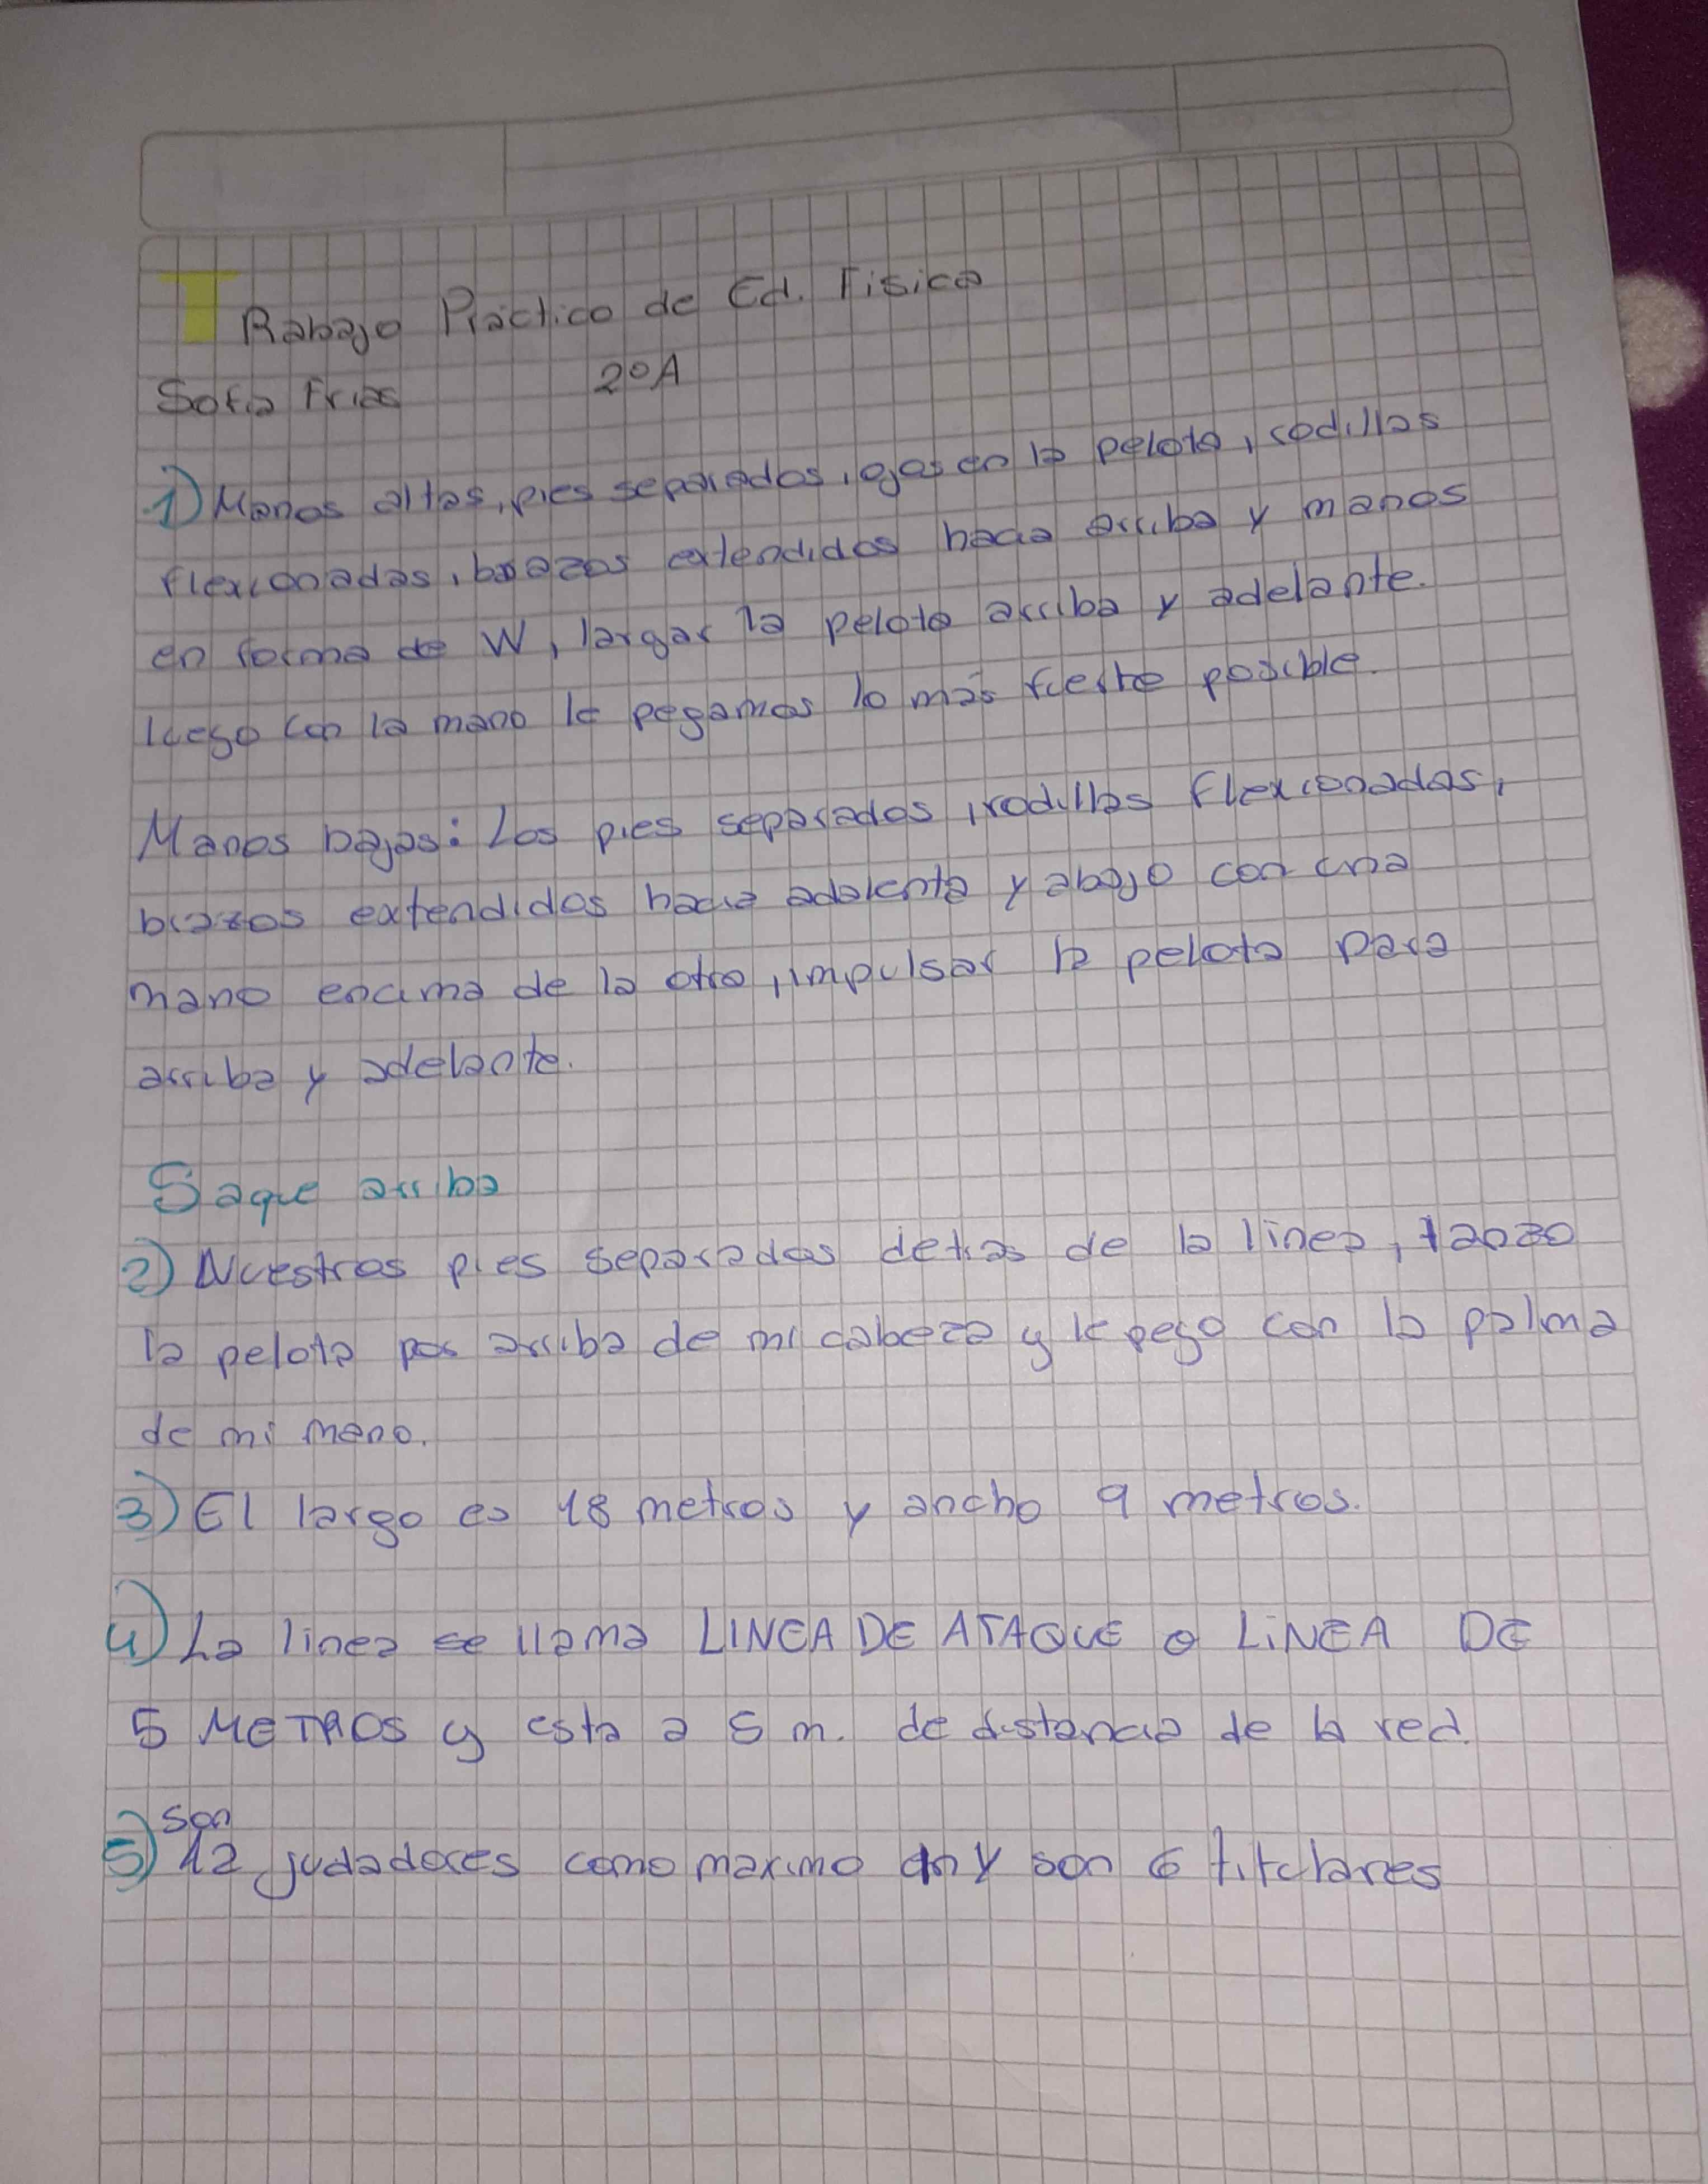 TRabajo Práctico de Ed. Fisica
Sofia Frias 2ºA
1) Manos altas, pies separados, ojos en la pelota, rodillas
flexionadas, brazos extendidos hacia arriba y manos
en forma de W, largar la pelota arriba y adelante.
luego con la mano le pegamos lo más fuerte posible.
Manos bajas: Los pies separados, rodillas flexionadas,
brazos extendidos hacia adelante y abajo con una
mano encima de la otra, impulsar la pelota para
arriba y adelante.
Saque arriba
2) Nuestros pies separados detras de la linea, lanzo
la pelota por arriba de mi cabeza y le pego con la palma
de mi mano.
3) El largo es 18 metros y ancho 9 metros.
4) La linea se llama LINEA DE ATAQUE o LiNEA DE
5 METROS y esta a 5 m. de distancia de la red.
son
5) 12 judadores como maximo y son 6 titulares